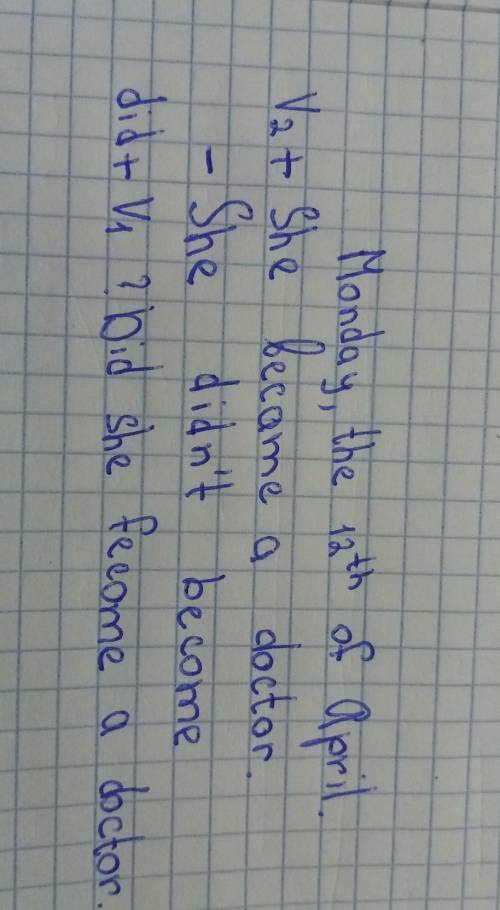 Monday, the 12th of April.
V2 + She became a doctor.
- She didn't become
did + V1 ? Did she fecome a doctor.